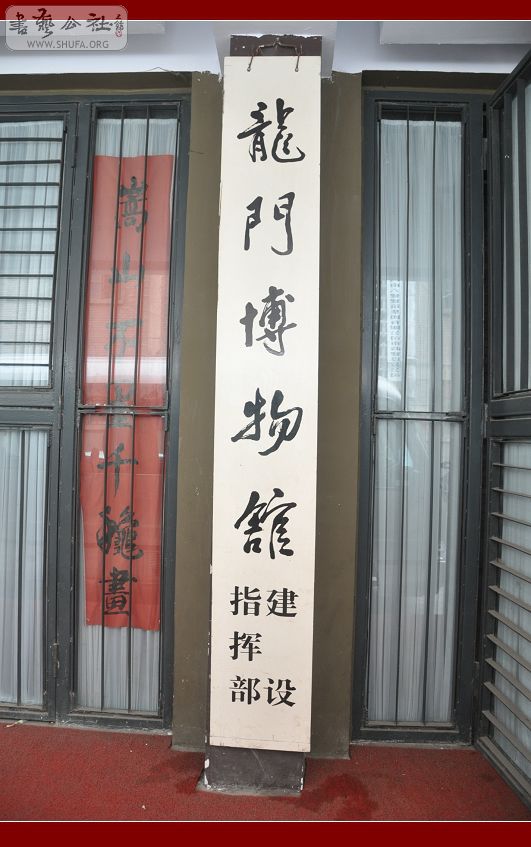 書藝公社
WWW.SHUFA.ORG
龍門博物館
建设
指挥部
嵩山不墨千龝畫